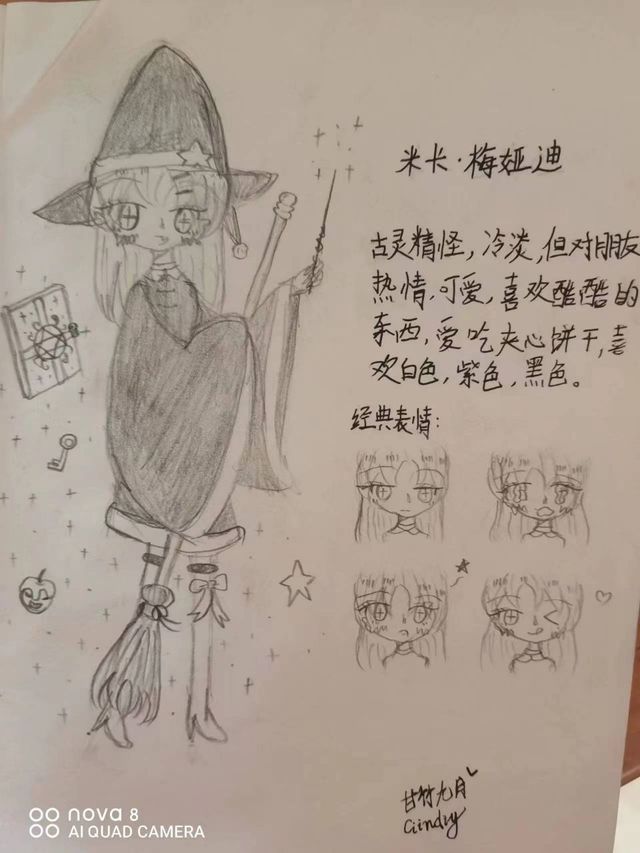 米卡·梅娅迪
古灵精怪，冷淡，但对朋友
热情，可爱，喜欢酷酷的
东西，爱吃夹心饼干，喜
欢白色，紫色，黑色。
经典表情：
甘竹九月
Ciindiy
nova 8
AI QUAD CAMERA